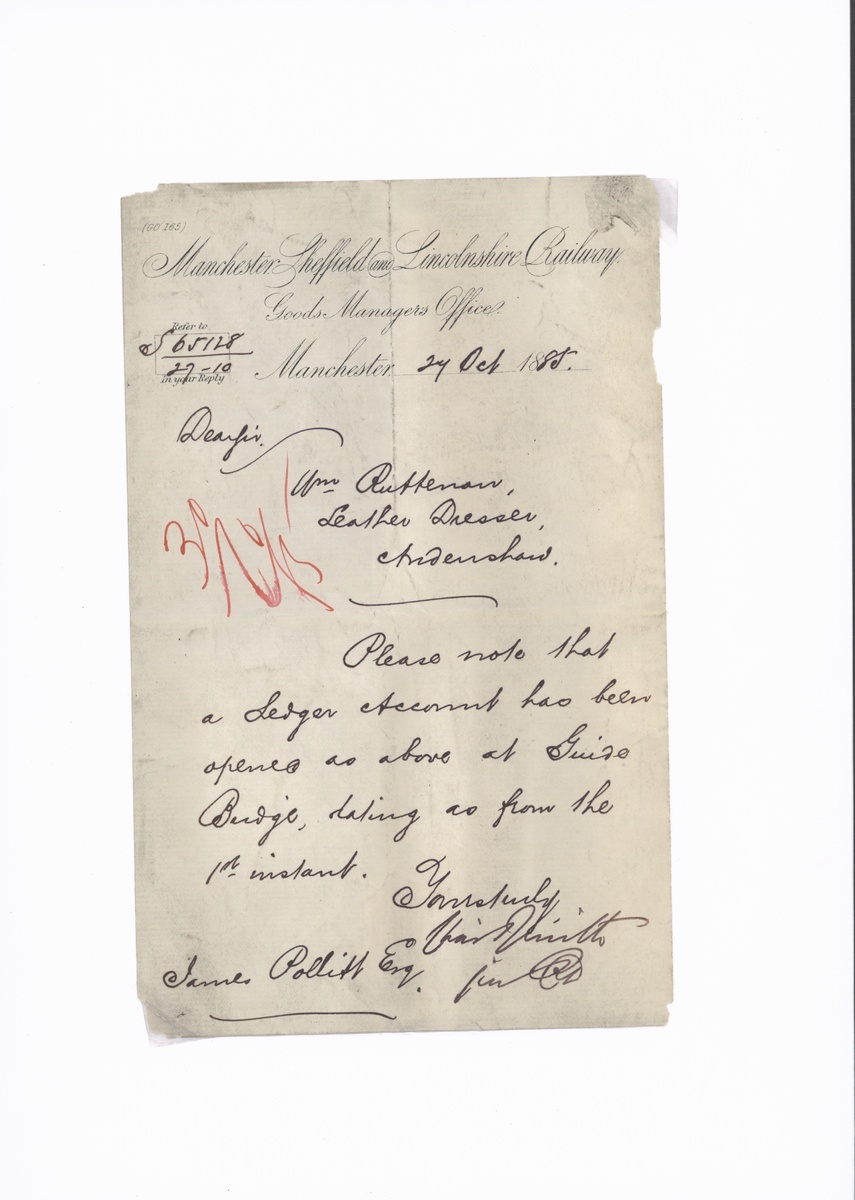 (GO 165)
Manchester Sheffield and Lincolnshire Railway.
Goods Managers Office.
Refer to
S 65128
27-10
In your Reply
Manchester 27 Oct 1885.
Dear Sir.
Wm Ruttenau,
Leather Dresser,
Audenshaw.
Please note that
a Ledger Account has been
opened as above at Guide
Bridge, dating as from the
1st instant.
Yours truly
James Pollitt Esq.